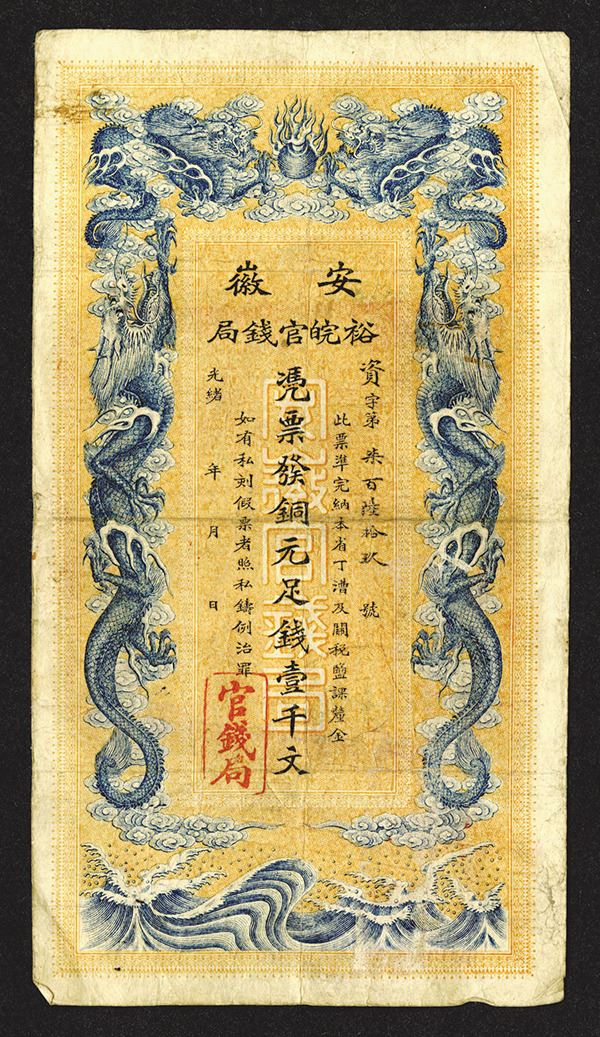 安徽
裕皖官錢局
資字第柒百陸拾玖號
此票準完納本省丁漕及關稅鹽課釐金
憑票發銅元足錢壹千文
如有私刻假票者照私鑄例治罪
光緒 年 月 日
官錢局